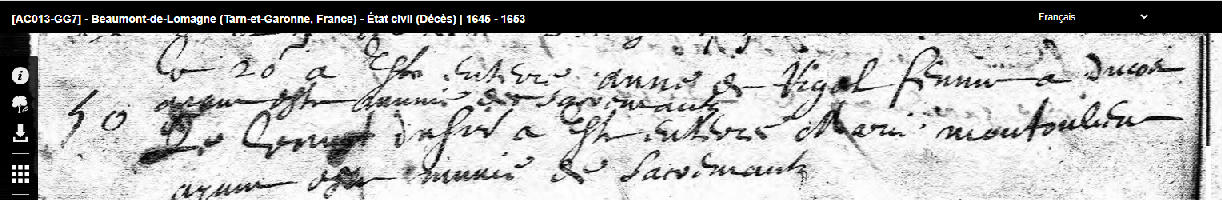 [AC013-GG7] - Beaumont-de-Lomagne (Tarn-et-Garonne, France) - État civil (Décès) | 1645 - 1653
Français
Le 26 a este enterré anne de Vigol femme a
ayant este munie des sacremants
50
Le a este enterré Marie montoulieu
ayant este munie de sacremants